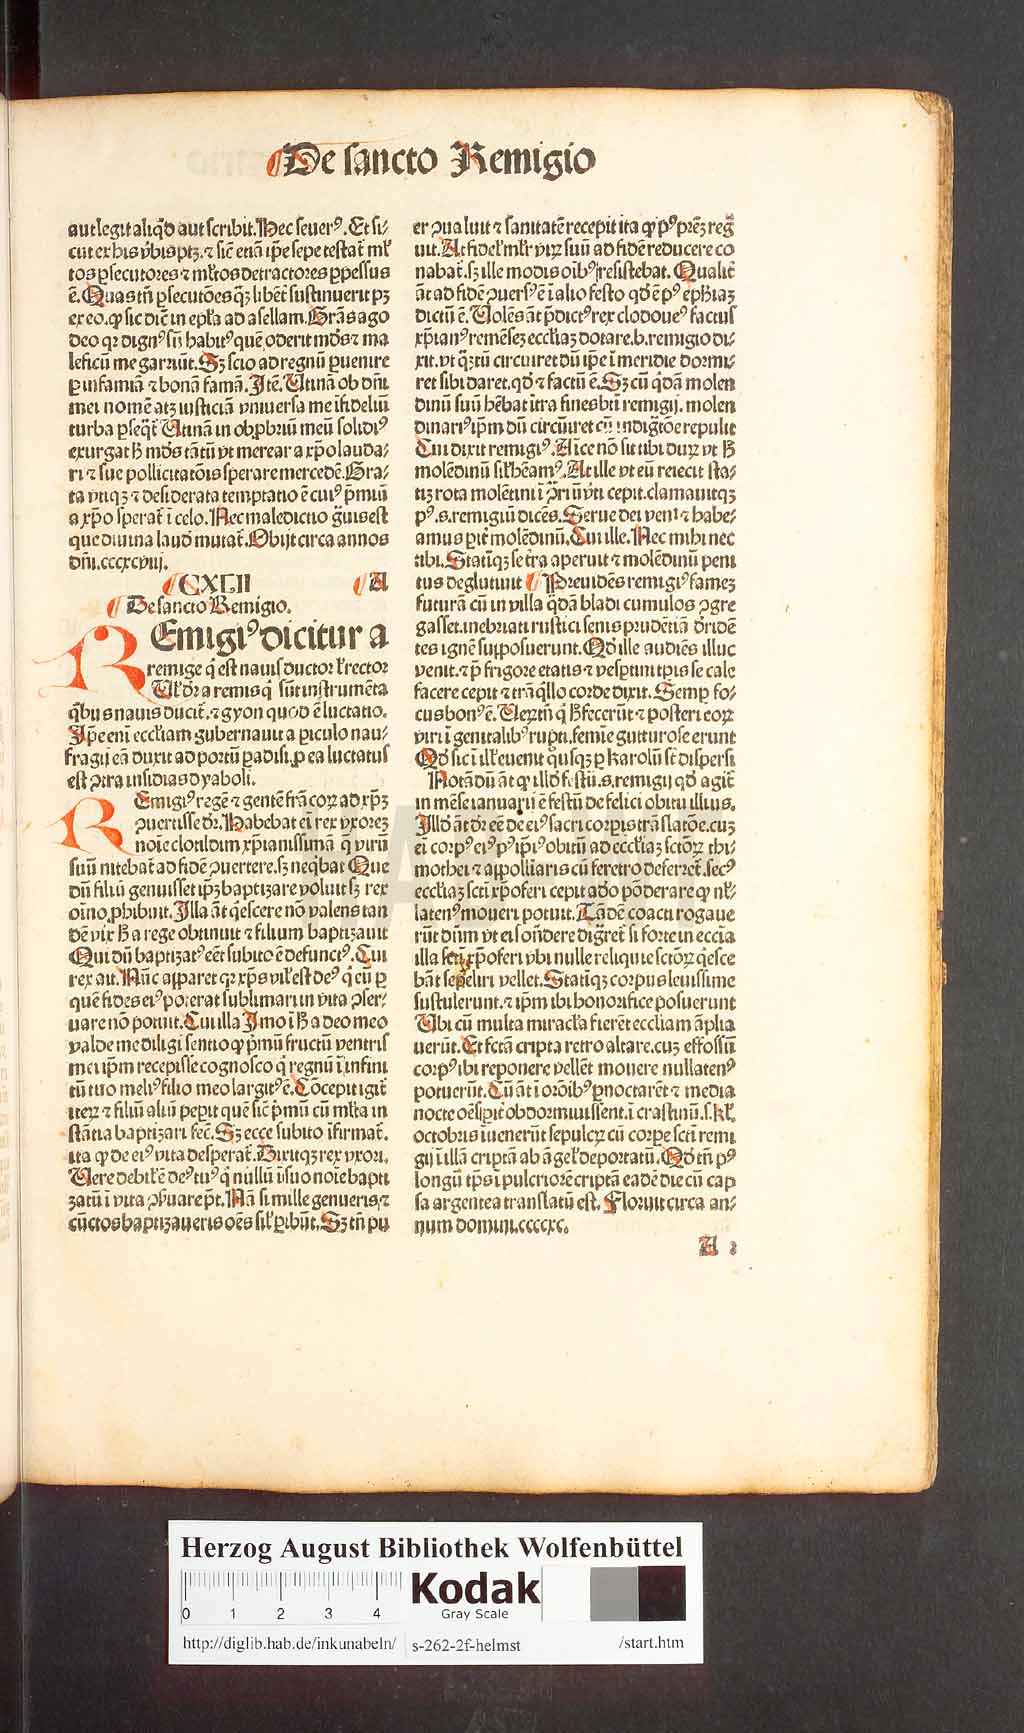 De sancto Remigio
aut legit aliqͥd aut scribit. Hec seuerꝰ. Et si⸗
cut ex his v̓bis ptꝫ. ⁊ sic̄ etiā ip̄e sepe testat᷑ ml̓
tos ꝑsecutores ⁊ ml̓tos detractores ꝑpessus
ē. Quas tn̄ ꝑsecutōes qꝫ libēt sustinuerit pꝫ
ex eo. ꝙ sic dic̄ in ep̄la ad asellam. Gr̄as ago
deo qꝛ dignꝰ sū habitꝰ quē oderit mūdꝰ ⁊ ma
leficū me garriūt. Sꝫ scio ad regnū ꝑuenire
ꝑ infamiā ⁊ bonā famā. Itē. Vtinā ob dn̄i
mei nomē atqꝫ iusticiā vniuersa me īfideliū
turba ꝑseqͣt᷑ Vtinā in obꝓbriū meū solidiꝰ
exurgat hͦ mūdꝰ tātū vt merear a xp̄o lauda⸗
ri ⁊ sue pollicitatōis sperare mercedē. Gra⸗
ta vtiqꝫ ⁊ desiderata temptatio ē cuiꝰ p̄miū
a xp̄o sperat᷑ ī celo. Nec maledictio gͣuis est
que diuina laude mutat᷑. Obijt circa annos
dn̄i. cccxcviij.
CXLII A
De sancto Remigio.
REmigiꝰ dicitur a
remige qͥ est nauis ductor ⁊ rector
Vel dr̄ a remis qͥ sūt instrumēta
qͥbus nauis ducit᷑. ⁊ gyon quod ē luctatio.
Ip̄e enī eccl̓iam gubernauit a ꝑiculo nau⸗
fragij eā duxit ad portū paradisi. ꝓ ea luctatus
est ꝯtra insidias dyaboli.
REmigiꝰ regē ⁊ gentē frācoꝝ ad xp̄ꝫ
ꝯuertisse dr̄. Habebat ei rex vxorēꝫ
noīe clotildim xp̄ianissimā q̄ virū
suū nitebat᷑ ad fidē ꝯuertere. sꝫ neqͥbat Que
dū filiū genuisset ip̄ꝫ baptizare voluit sꝫ rex
oīno ꝓhibuit. Illa āt qͥescere nō valens tan
dē vix hͦ a rege obtinuit ⁊ filium baptizauit
Qui dū baptizatꝰ eēt subito ē defunctꝰ. Cui
rex ait. Nūc apparet qꝛ xp̄s vil̓ est deꝰ qͥ eū ꝑ
quē fides eiꝰ poterat sublimari in vita ꝯser⸗
uare nō potuit. Cui illa Imo ī hͦ a deo meo
valde me diligi sentio ꝙ p̄mū fructū ventris
mei ip̄m recepisse cognosco qͥ regnū ī infini
tū tuo meliꝰ filio meo largitꝰ ē. Cōcepit igit᷑
iteꝝ ⁊ filiū aliū peperit quē sic̄ p̄mū cū ml̓ta in
stātia baptizari fec̄. Sꝫ ecce subito īfirmat᷑.
ita ꝙ de eiꝰ vita desperat᷑. Dixitqꝫ rex vxori.
Vere debil̓ ē deꝰ tuꝰ qͥ nullū ī suo noīe bapti
zatū ī vita ꝯseruare pōt. Nā si mille genueris ⁊
cūctos baptizaueris oēs sil̓ ꝑibūt. Sꝫ tn̄ pu
er ꝯualuit ⁊ sanitatē recepit ita ꝙ pꝰ pr̄eꝫ regͣ
uit. At fidel̓ ml̓r virū suū ad fidē reducere co
nabat᷑. sꝫ ille modis oībꝰ resistebat. Qualit᷑
āt ad fidē ꝯuersꝰ ē ī alio festo qd̓ ē pꝰ eph̓iaꝫ
dictū ē. Volēs āt p̄dictꝰ rex clodoueꝰ factus
xp̄ianꝰ remēseꝫ eccl̓iaꝫ dotare. b. remigio di⸗
xit. vt qͣꝫtū circuiret dū ip̄e ī meridie dormi⸗
ret sibi daret. qd̓ ⁊ factū ē. Sꝫ cū qͥdā molen
dinū suū hēbat ītra fines bt̄i remigij. molen
dinariꝰ ip̄m dū circūiret cū indigt̄ōe repulit
Cui dixit remigiꝰ. Amice nō sit tibi duꝝ vt hͦ
molēdinū sil̓ hēamꝰ. At ille vt eū reiecit sta⸗
tiꝫ rota molēdini ī ꝯrͣriū v̓ti cepit. clamauitqꝫ
pꝰ. s. remigiū dicēs. Serue dei veni ⁊ habe⸗
amus ꝑit᷑ molēdinū. Cui ille. Nec mihi nec
tibi. Statīqꝫ se terra aperuit ⁊ molēdinū peni
tus deglutiuit Preuidēs remigiꝰ fameꝫ
futurā cū in villa qͣdā bladi cumulos ꝯgre
gasset. inebriati rustici senis prudētiā dr̓idē
tes ignē supposuerunt. Qd̓ ille audiēs illuc
venit. ⁊ p̄ frigore etatis ⁊ vesꝑtini tp̄is se cale
facere cepit ⁊ trāqͥllo corde dixit. Semꝑ fo⸗
cus bonꝰ ē. Veꝝtn̄ qͥ hͦ fecerūt ⁊ posteri eoꝝ
viri ī genitalibꝰ rupti. femīe gutturose erunt
Qd̓ sic ī ill̓ euenit qusqꝫ ꝑ karolū sūt dispersi
Notādū āt ꝙ illd̓ festū. s. remigij qd̓ agit᷑
in mēse ianuarij ē festū de felici obitu illius.
Illd̓ āt dr̄ eē de eiꝰ sacri corpis trāslatōe. cuꝫ
ei corpꝰ eiꝰ pꝰ ip̄iꝰ obitū ad eccl̓iaꝫ sctōꝝ thi⸗
mothei ⁊ appollīaris cū feretro deferret᷑. secꝰ
eccl̓iaꝫ sct̄i xp̄oferi cepit adeo pōderare ꝙ nl̓⸗
latenꝰ moueri potuit. Tādē coacti rogaue
rūt dn̄m vt eis oñdere dignͣret᷑ si forte in ecc̄ia
illa sct̄i xp̄oferi vbi nulle reliquie sctōꝝ qͥesce
bāt sepeliri vellet. Statīqꝫ corpus leuissime
sustulerunt. ⁊ ip̄m ibi honorifice posuerunt
Vbi cū multa miracl̓a fierēt eccl̓iam āplia
uerūt. Et fctā cripta retro altare. cuꝫ effossū
corpꝰ ibi reponere vellēt mouere nullatenꝰ
potuerūt. Cū āt ī orōibꝰ ꝑnoctarēt ⁊ media
nocte oēs ꝑit᷑ obdormiuissent. ī crastinū. s. kl̓.
octobris īuenerūt sepulcꝝ cū corꝑe sct̄i remi
gij ī illā criptā ab āgel̓ deportatū. Qd̓ tn̄ pꝰ
longū tp̄s ī pulcriorē criptā eadē die cū cap
sa argentea translatū est. Floruit circa an⸗
num domini. ccccxc.
A 2
HAB-WF
Herzog August Bibliothek Wolfenbüttel
0 1 2 3 4
Kodak
Gray Scale
http://diglib.hab.de/inkunabeln/ s-262-2f-helmst /start.htm